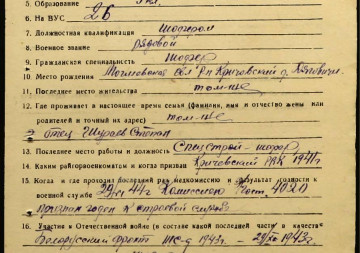 5. Образование 7 кл.
6. На ВУС 26
7. Должностная квалификация шофером
8. Военное звание рядовой
9. Гражданская специальность шофер
10. Место рождения Могилевская обл. Рн Кричевский д.
11. Последнее место жительства там-же
12. Где проживает в настоящее время семья (фамилия, имя и отчество жены или
родителей и точный их адрес) там-же
отец Степан
13. Последнее место работы и должность Спецстрой - шофер
14. Каким райгорвоенкоматом и когда призван Кричевский РВК 1941 г.
15. Когда и где проходил последний раз медкомиссию и результат годности к
военной службе 44 г. Комиссией част. 4020
признан годен к строевой службе
16. Участие в Отечественной войне (в составе какой последней части в качестве
Белорусский фронт 1943 г. - 1943 г.